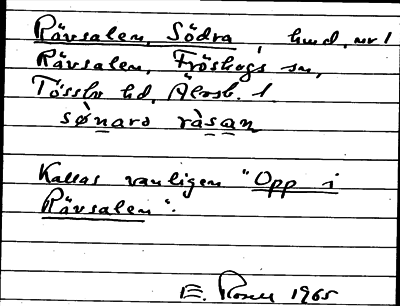 Rävsalen, Södra, hmd. nr 1
Rävsalen, Fröskogs sn,
Tössbo hd, Älvsb. l.
sø̀naro ràsan
Kallas vanligen "Opp i
Rävsalen".
E. Rosell 1965